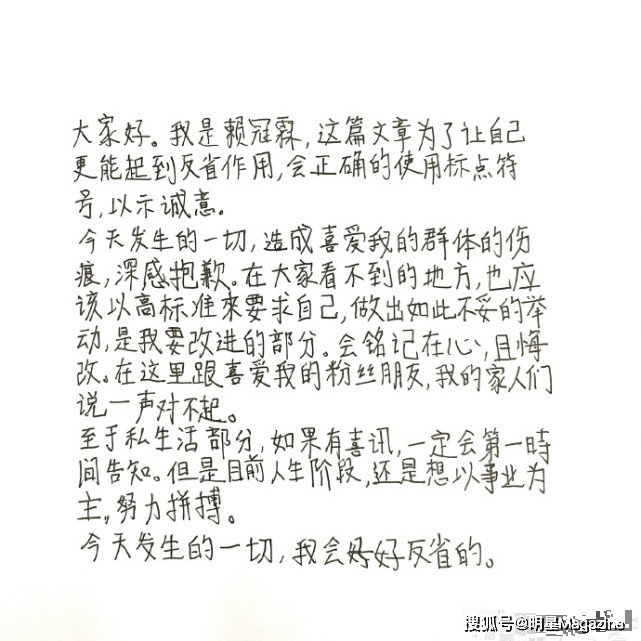 大家好。我是赖冠霖，这篇文章为了让自己
更能起到反省作用，会正确的使用标点符
号，以示诚意。
今天发生的一切，造成喜爱我的群体的伤
痕，深感抱歉。在大家看不到的地方，也应
该以高标准来要求自己，做出如此不妥的举
动，是我要改进的部分。会铭记在心，且悔
改。在这里跟喜爱我的粉丝朋友，我的家人们
说一声对不起。
至于私生活部分，如果有喜讯，一定会第一時
间告知。但是目前人生阶段，还是想以事业为
主。努力拼搏。
今天发生的一切，我会好好反省的。
搜狐号@明星Magazine